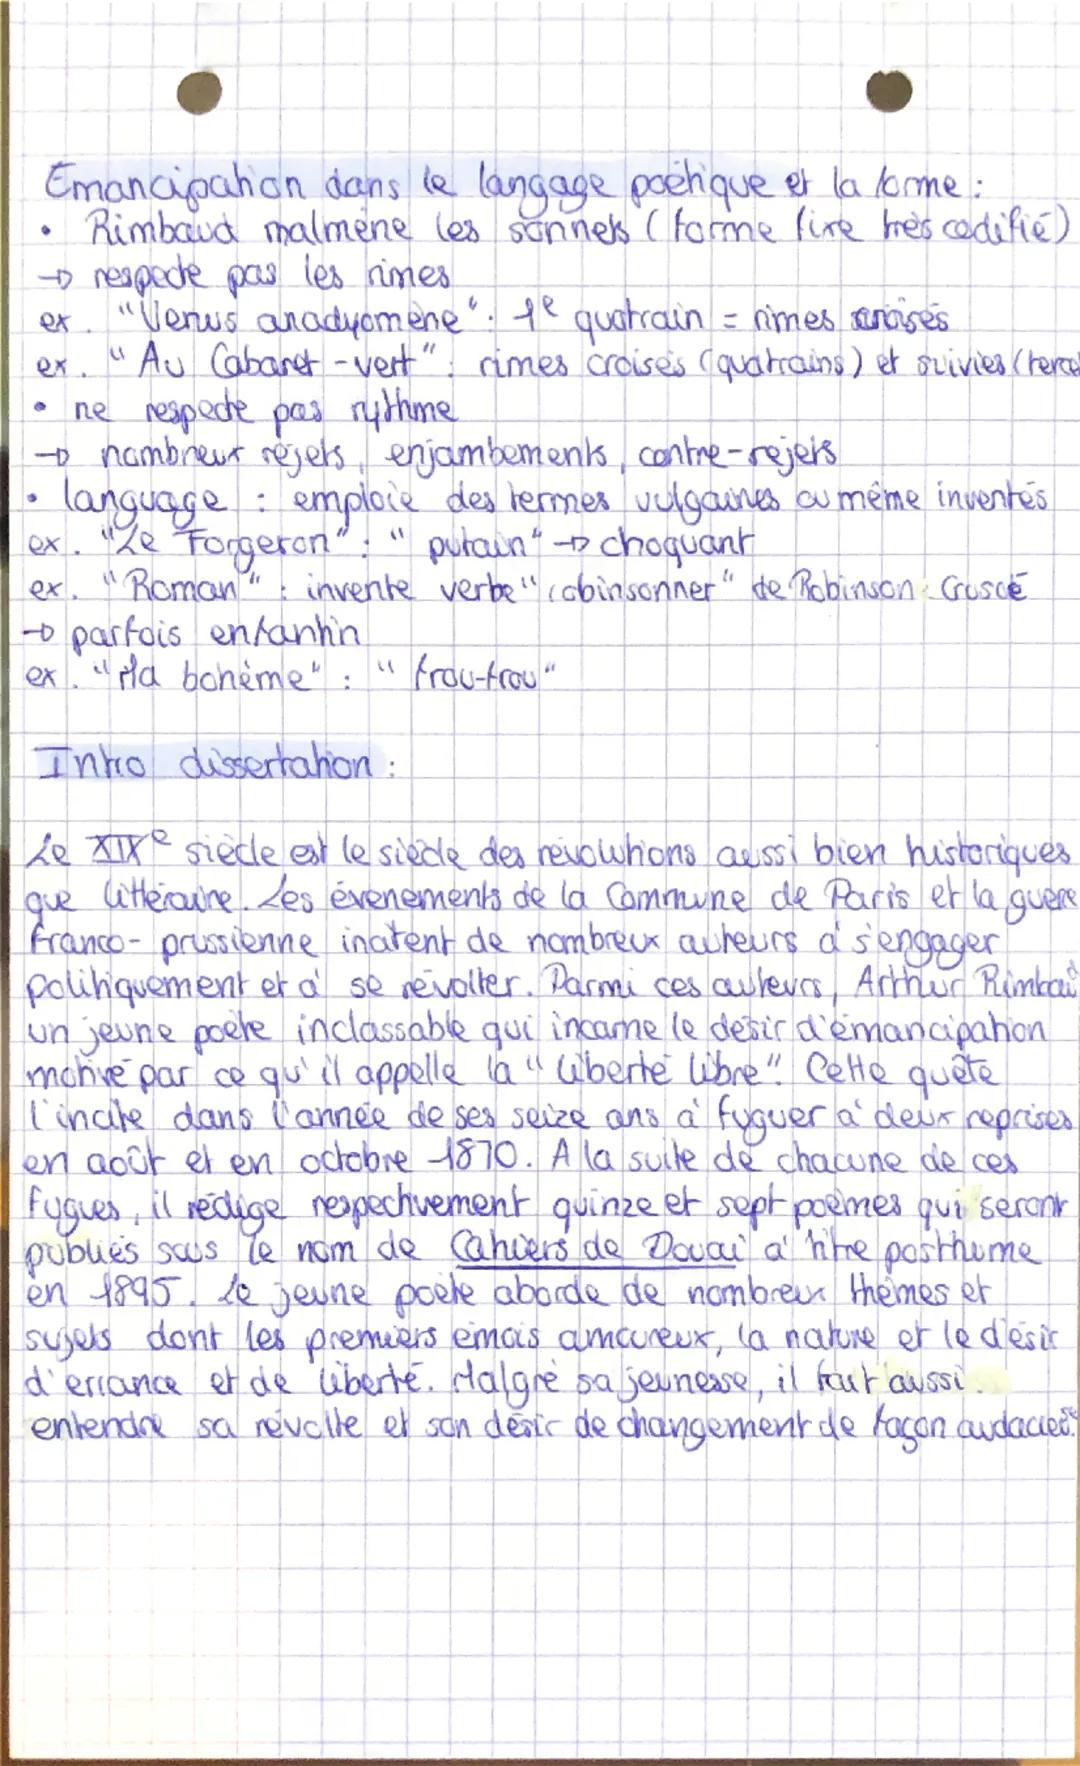 Emancipation dans le langage poétique et la forme :
• Rimbaud malmène les sonnets (forme fixe très codifié)
→ respecte pas les rimes
ex. "Venus anadyomène" : 1e quatrain = rimes croisés
ex. "Au Cabaret-vert" : rimes croisés (quatrains) et suivies (terce
• ne respecte pas rythme
→ nombreux rejets, enjambements, contre-rejets
• language : emploie des termes vulgaires ou même inventés
ex. "Le Forgeron" : "putain" → choquant
ex. "Roman" : invente verbe "robinsonner" de Robinson Crusoé
→ parfois enfantin
ex. "Ma bohème" : "frou-frou"
Intro dissertation :
Le XIXe siècle est le siècle des révolutions aussi bien historiques
que littéraire. Les évenements de la Commune de Paris et la guerre
franco-prussienne incitent de nombreux auteurs à s'engager
politiquement et à se révolter. Parmi ces auteurs, Arthur Rimbaud
un jeune poète inclassable qui incarne le désir d'émancipation
motivé par ce qu'il appelle la "liberté libre". Cette quête
l'incite dans l'année de ses seize ans à fuguer à deux reprises
en août et en octobre 1870. A la suite de chacune de ces
fugues, il rédige respectivement quinze et sept poèmes qui seront
publiés sous le nom de Cahiers de Douai à titre posthume
en 1895. Le jeune poète aborde de nombreux thèmes et
sujets dont les premiers émois amoureux, la nature et le désir
d'errance et de liberté. Malgré sa jeunesse, il fait aussi
entendre sa révolte et son désir de changement de façon